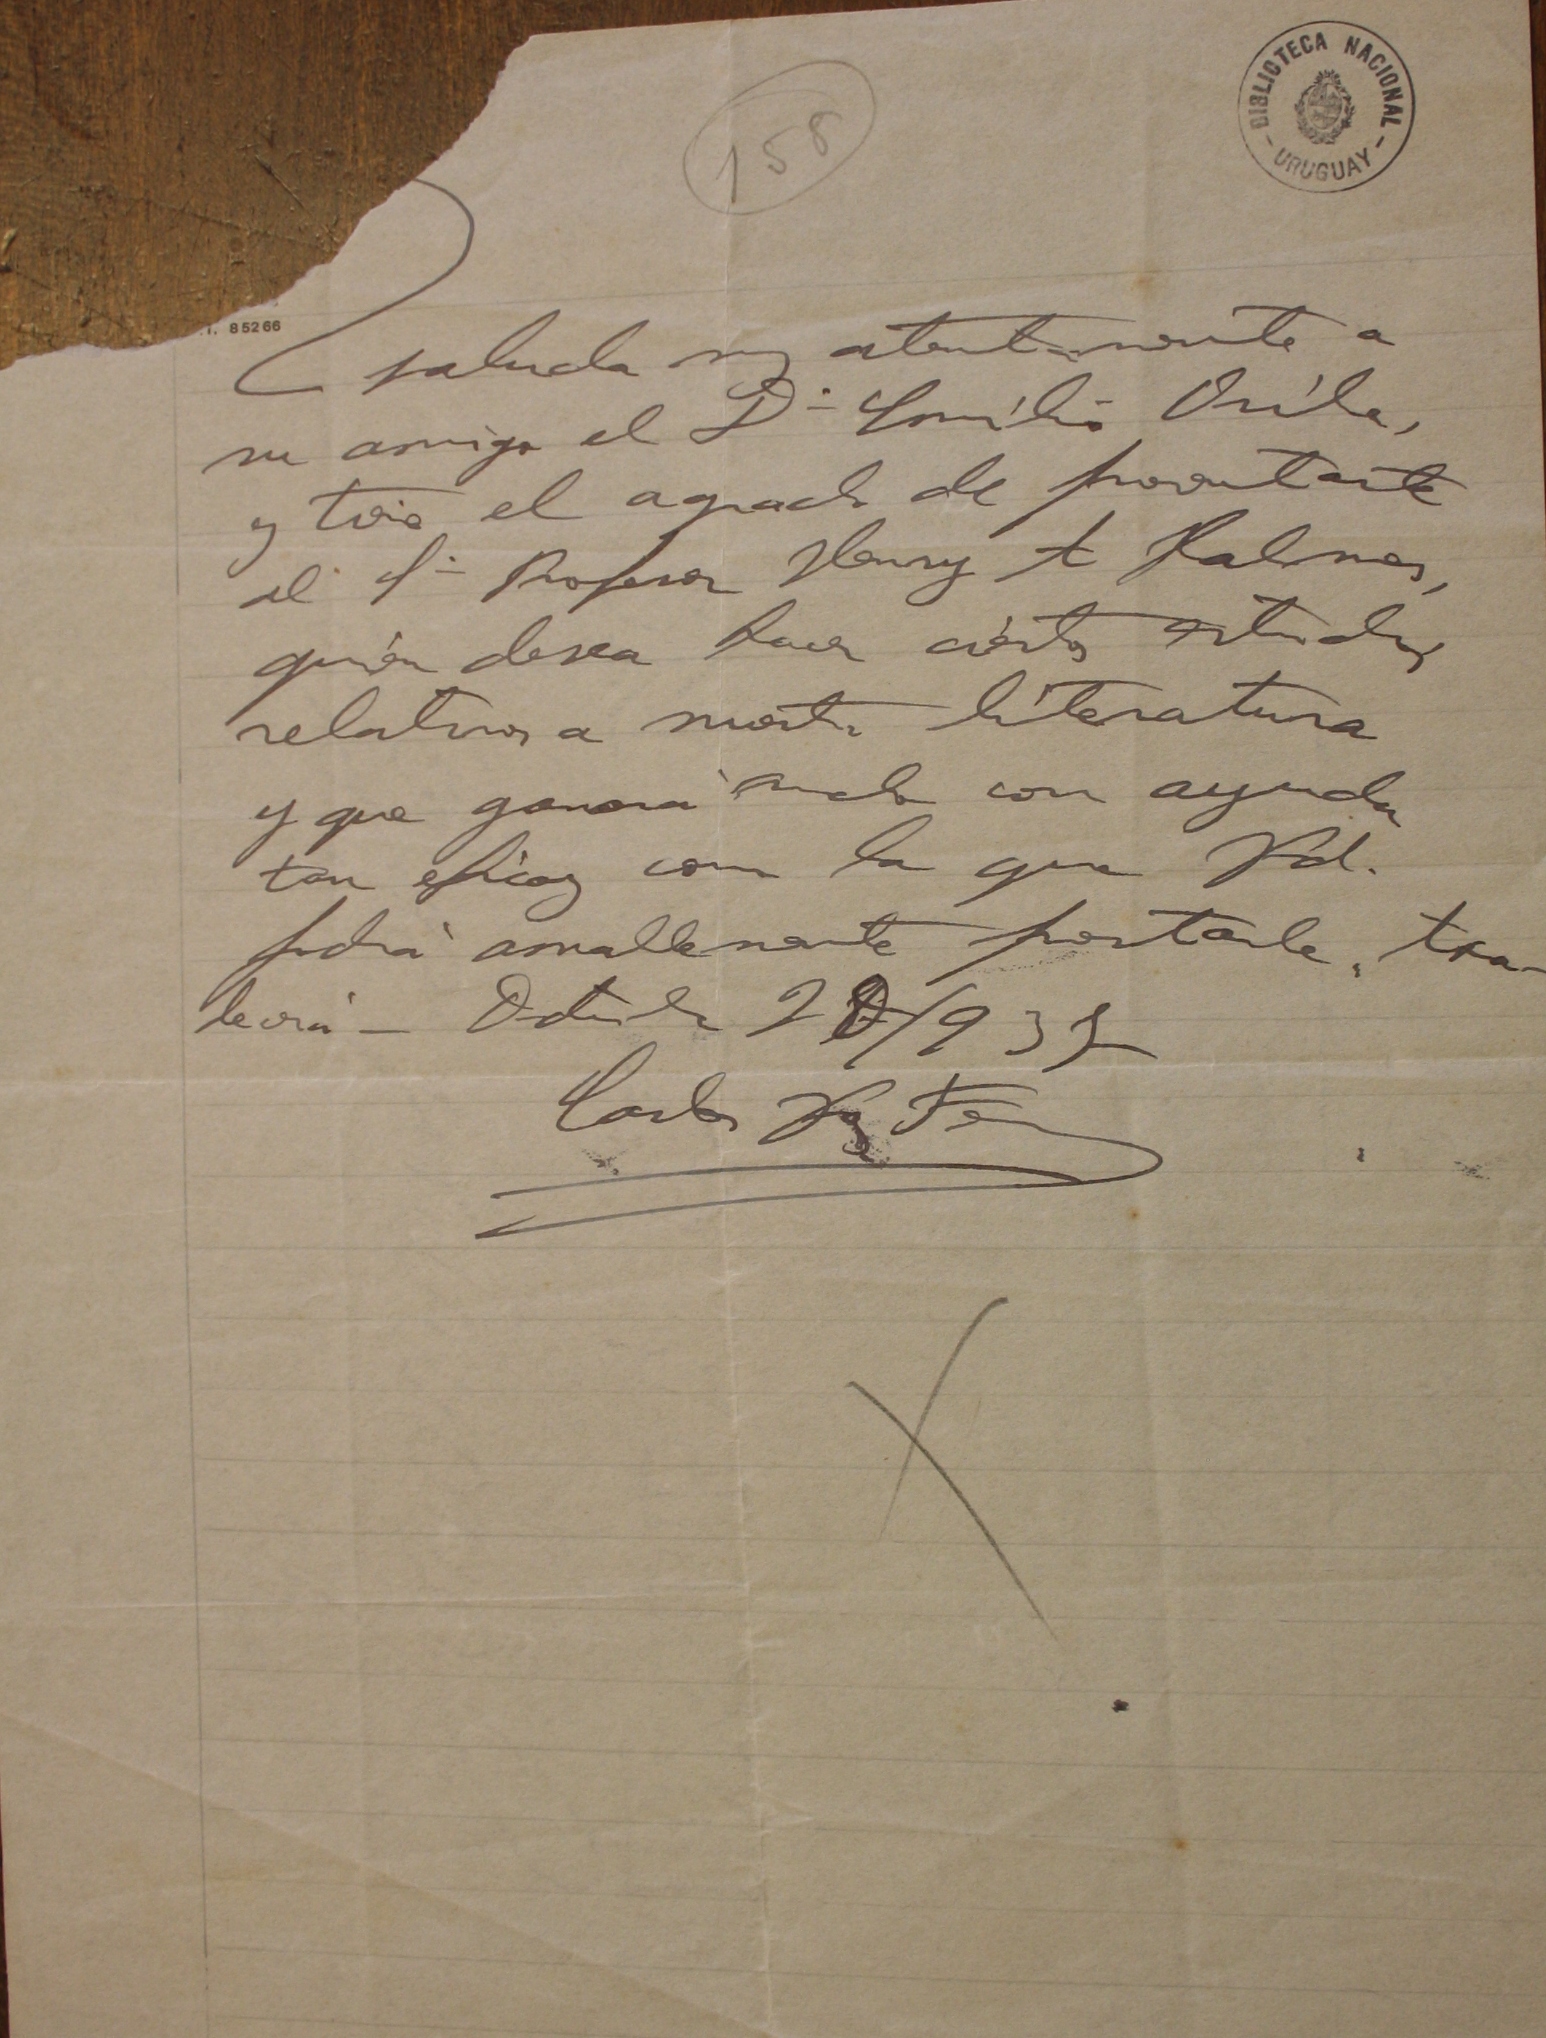 158
BIBLIOTECA NACIONAL
- URUGUAY -
85266
saluda muy atentamente a
su amigo el Dr. Emilio Oribe,
y tiene el agrado de presentarle
al Sr. Profesor Henry A Holmes,
quién desea hacer ciertos estudios
relativos a nuestra literatura
y que ganará mucho con ayuda
tan eficaz como la que Vd.
podrá amablemente prestarle, tra-
Octubre 20/935
Carlos Vaz Fer